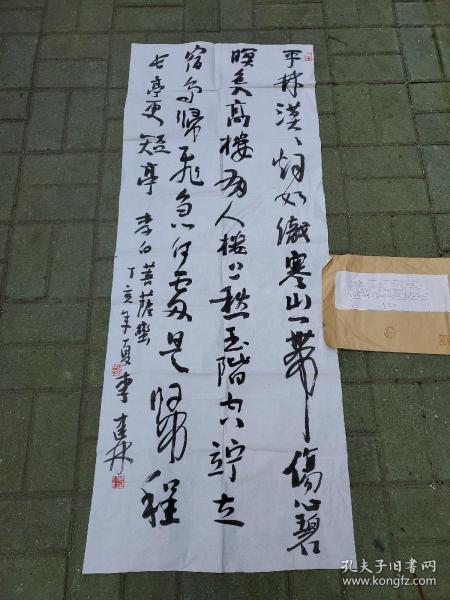 平林漠々烟如织寒山一带伤心碧
暝色高楼有人楼上愁玉阶空竚立
宿鸟归飞急何处是归程
长亭更短亭 李白菩萨蛮
丁亥年夏李建林
孔夫子旧书网
www.kongfz.com